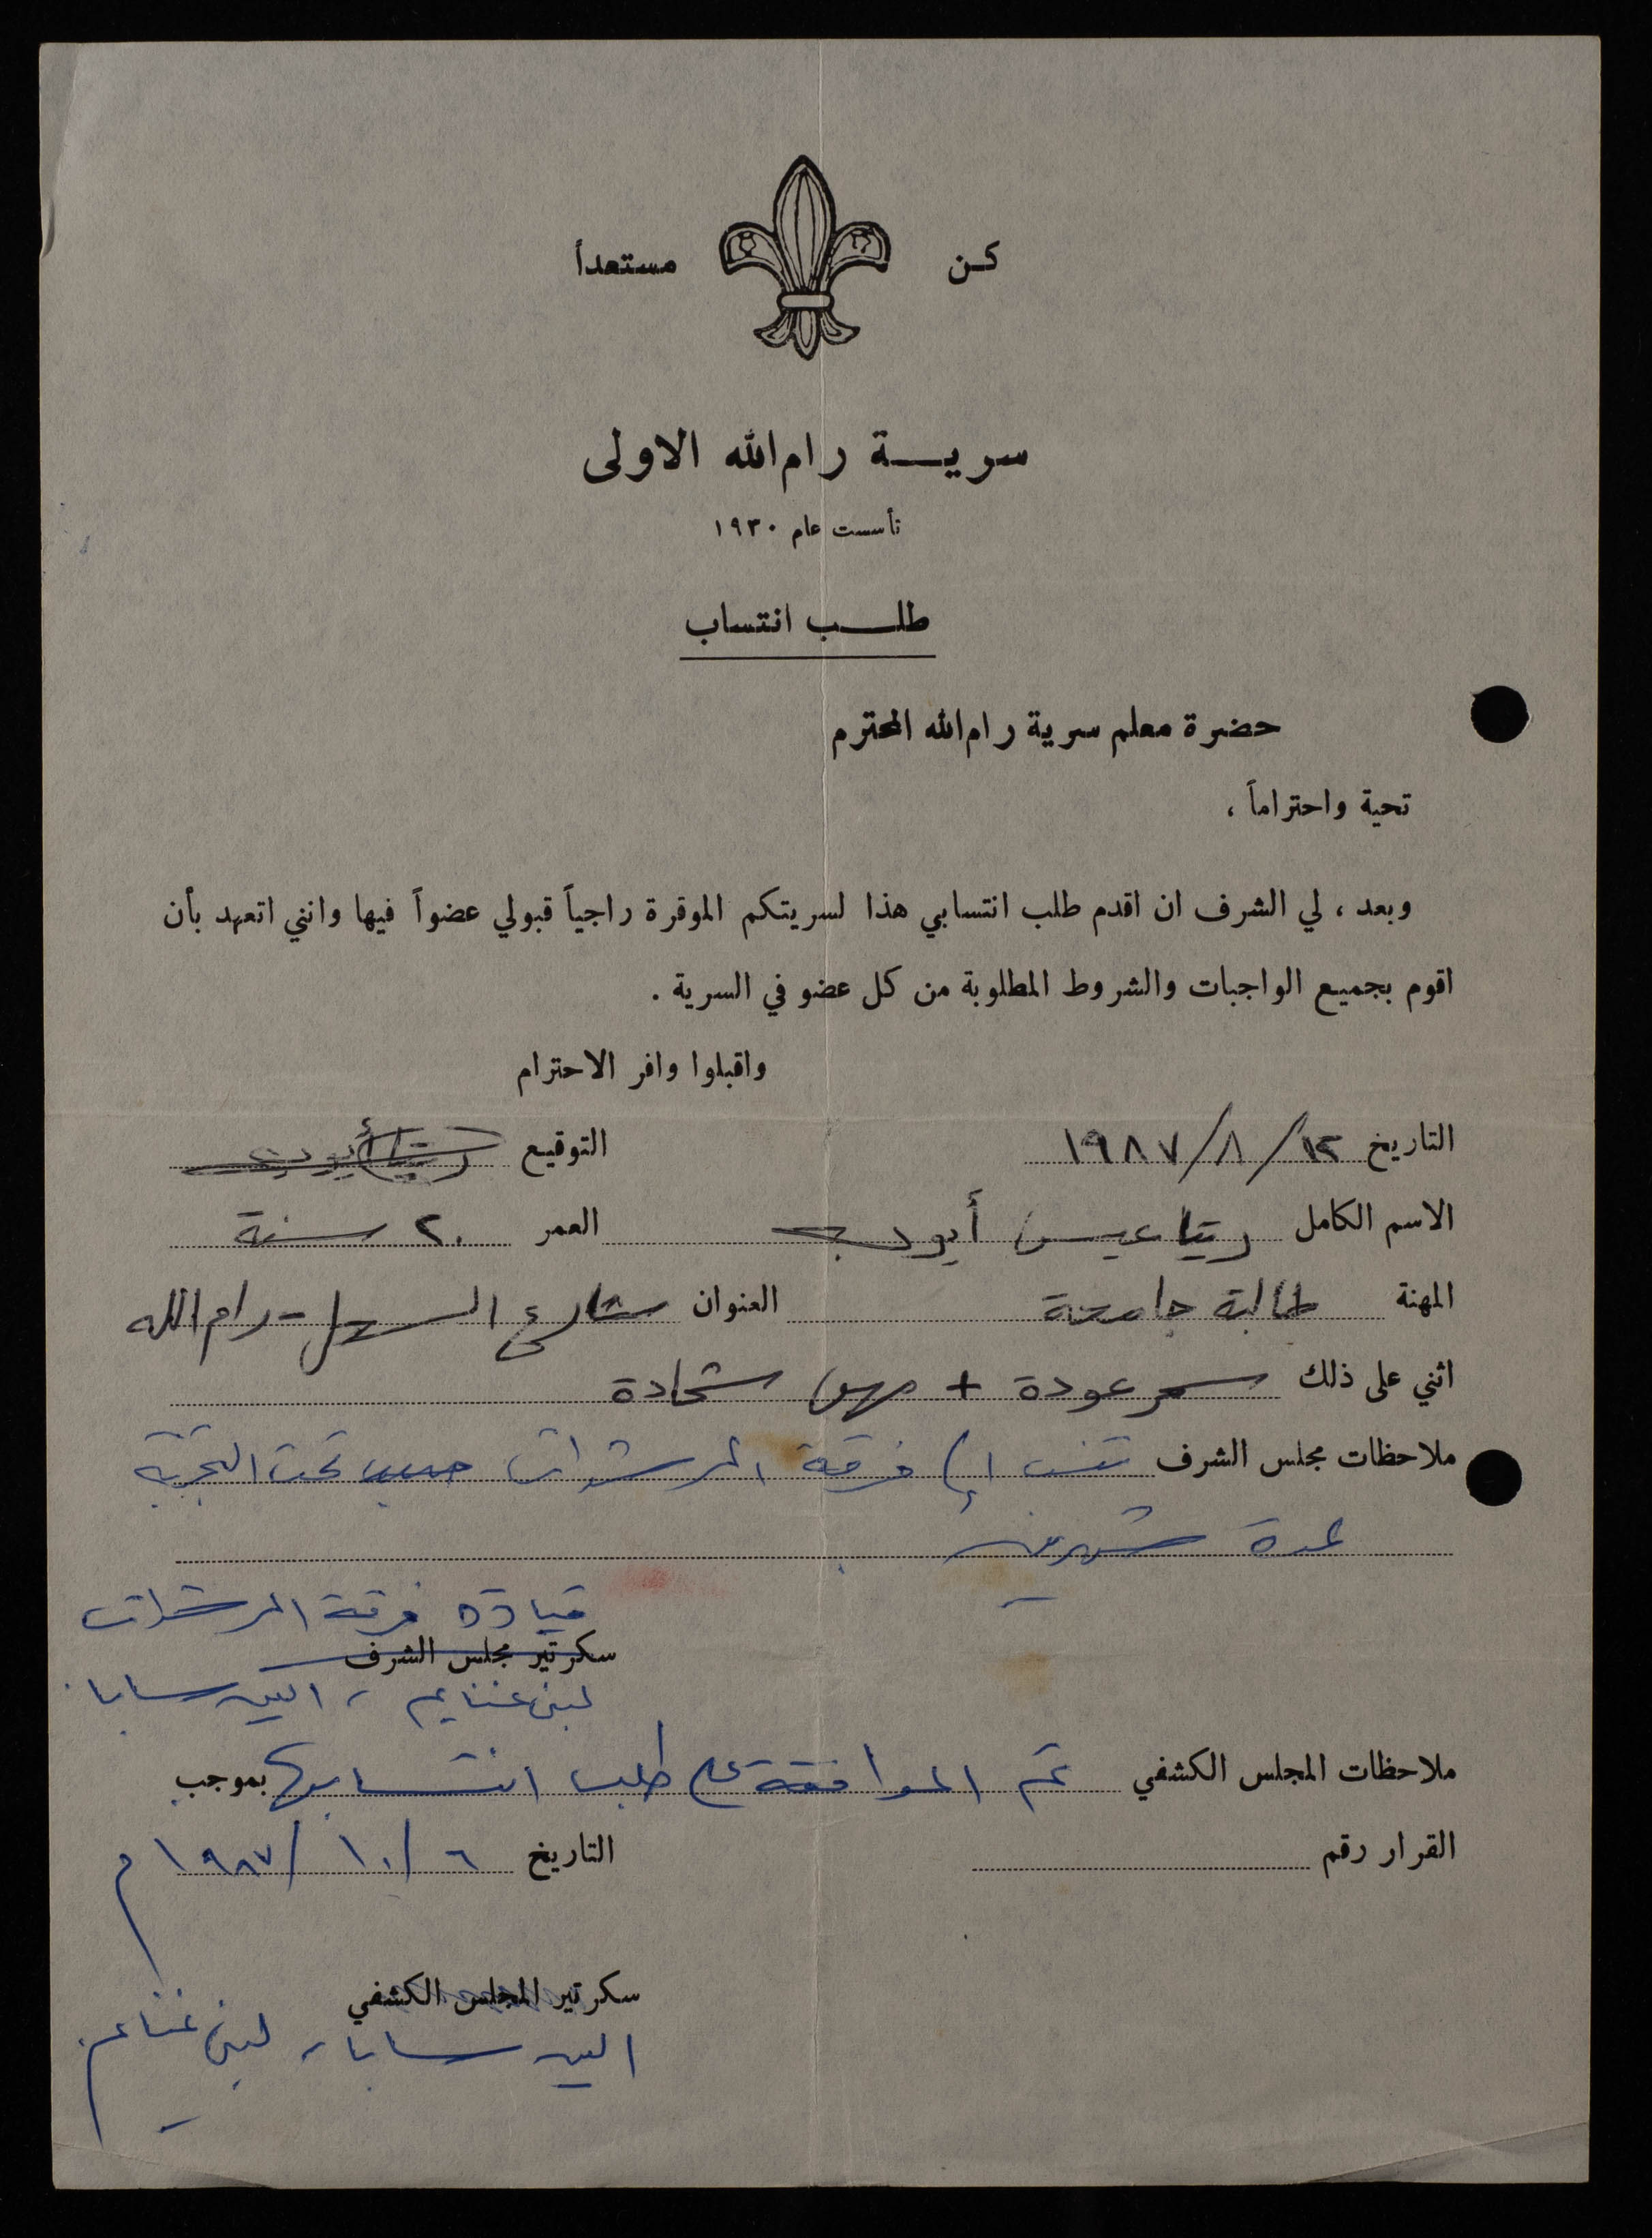 كن مستعداً
سرية رام الله الاولى
تأسست عام ١٩٣٠
طلب انتساب
حضرة معلم سرية رام الله المحترم
تحية واحتراماً ،
وبعد ، لي الشرف ان اقدم طلب انتسابي هذا لسريتكم الموقرة راجياً قبولي عضواً فيها وانني اتعهد بأن
اقوم بجميع الواجبات والشروط المطلوبة من كل عضو في السرية .
واقبلوا وافر الاحترام
التاريخ ١٢/٨/١٩٨٧ التوقيع ريتا أيوب
الاسم الكامل ريتا عيسى أيوب العمر ٢٠ سنة
المهنة طالبة جامعة العنوان شارع السهل - رام الله
اثني على ذلك سمر عودة + مهى شحادة
ملاحظات مجلس الشرف تنسب إلى فرقة المرشدات تحت التجربة
لمدة شهرين
قيادة فرقة المرشدات
سكرتير مجلس الشرف
لبنى غنايم ، اليس سابا
ملاحظات المجلس الكشفي تم الموافقة على طلب انتسابها بموجب
القرار رقم التاريخ ٦/١٠/١٩٨٧م
سكرتير المجلس الكشفي
اليس سابا ، لبنى غنايم